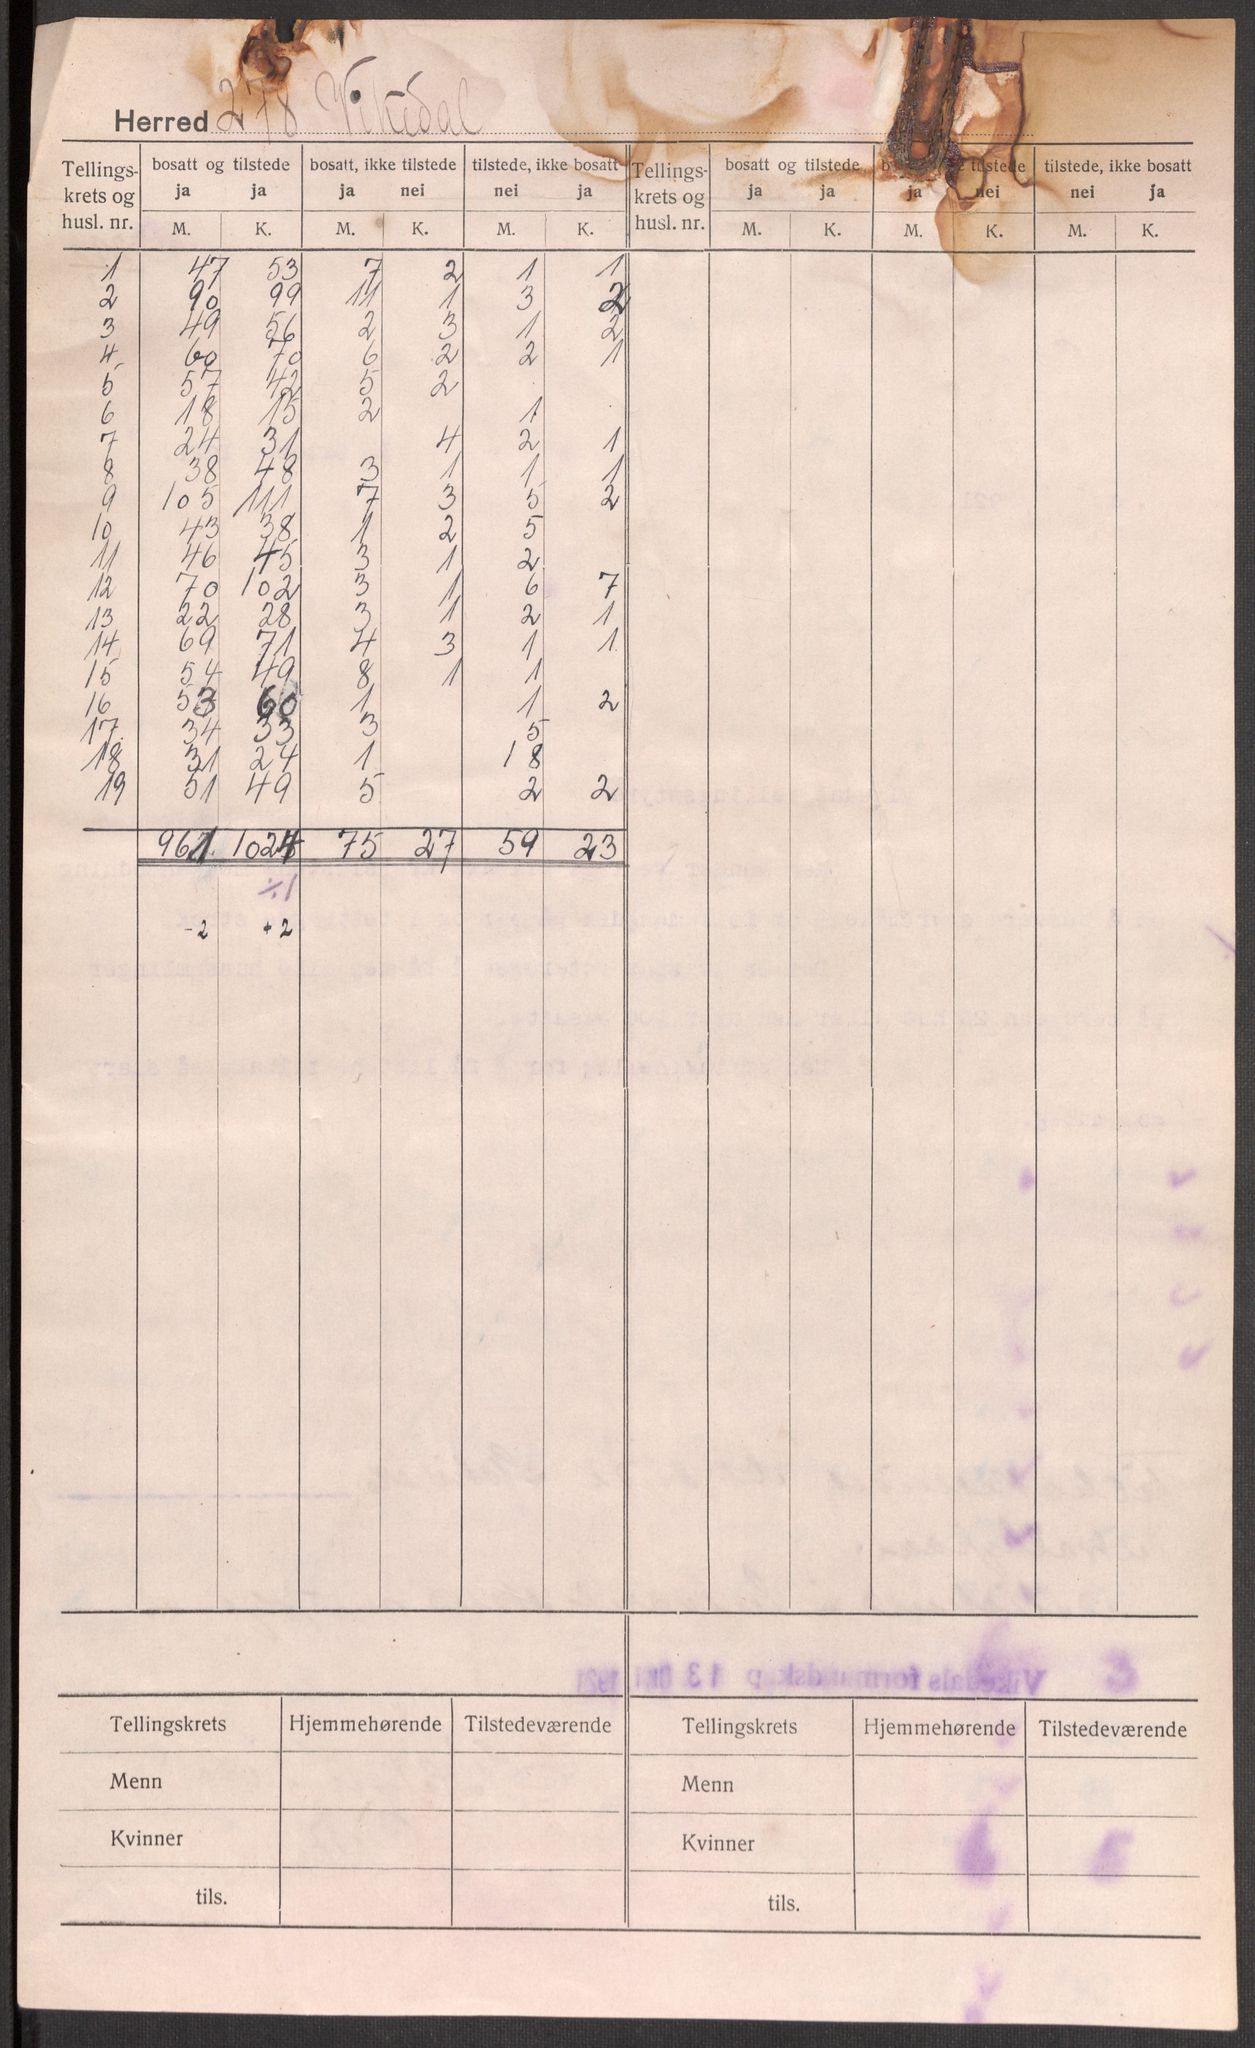 Herred 278 Vikedal
Tellings- krets og husl. nr. | bosatt og tilstede | bosatt, ikke tilstede | tilstede, ikke bosatt | Tellings- krets og husl. nr. | bosatt og tilstede | tilstede | tilstede, ikke bosatt
ja ja ja nei nei ja ja ja ja nei nei ja
M. K. M. K. M. K. M. K. M. K. M. K.
1 47 53 7 2 1 1
2 90 99 11 1 3 2
3 49 56 2 3 1 2
4 60 70 6 2 2 1
5 57 42 5 2
6 18 15 2 1
7 24 31 4 2 1
8 38 48 3 1 1 1
9 105 111 7 3 5 2
10 43 38 1 2 5
11 46 45 3 1 2
12 70 102 3 1 6 7
13 22 28 3 1 2 1
14 69 71 4 3 1 1
15 54 49 8 1 1
16 53 60 1 1 2
17 34 33 3 5
18 31 24 1 18
19 51 49 5 2 2
961 1024 75 27 59 23
÷1
-2 +2
Vikedals formandskap 13 OKT. 1921
Tellingskrets Hjemmehørende Tilstedeværende Tellingskrets Hjemmehørende Tilstedeværende
Menn Menn
Kvinner Kvinner
tils. tils.